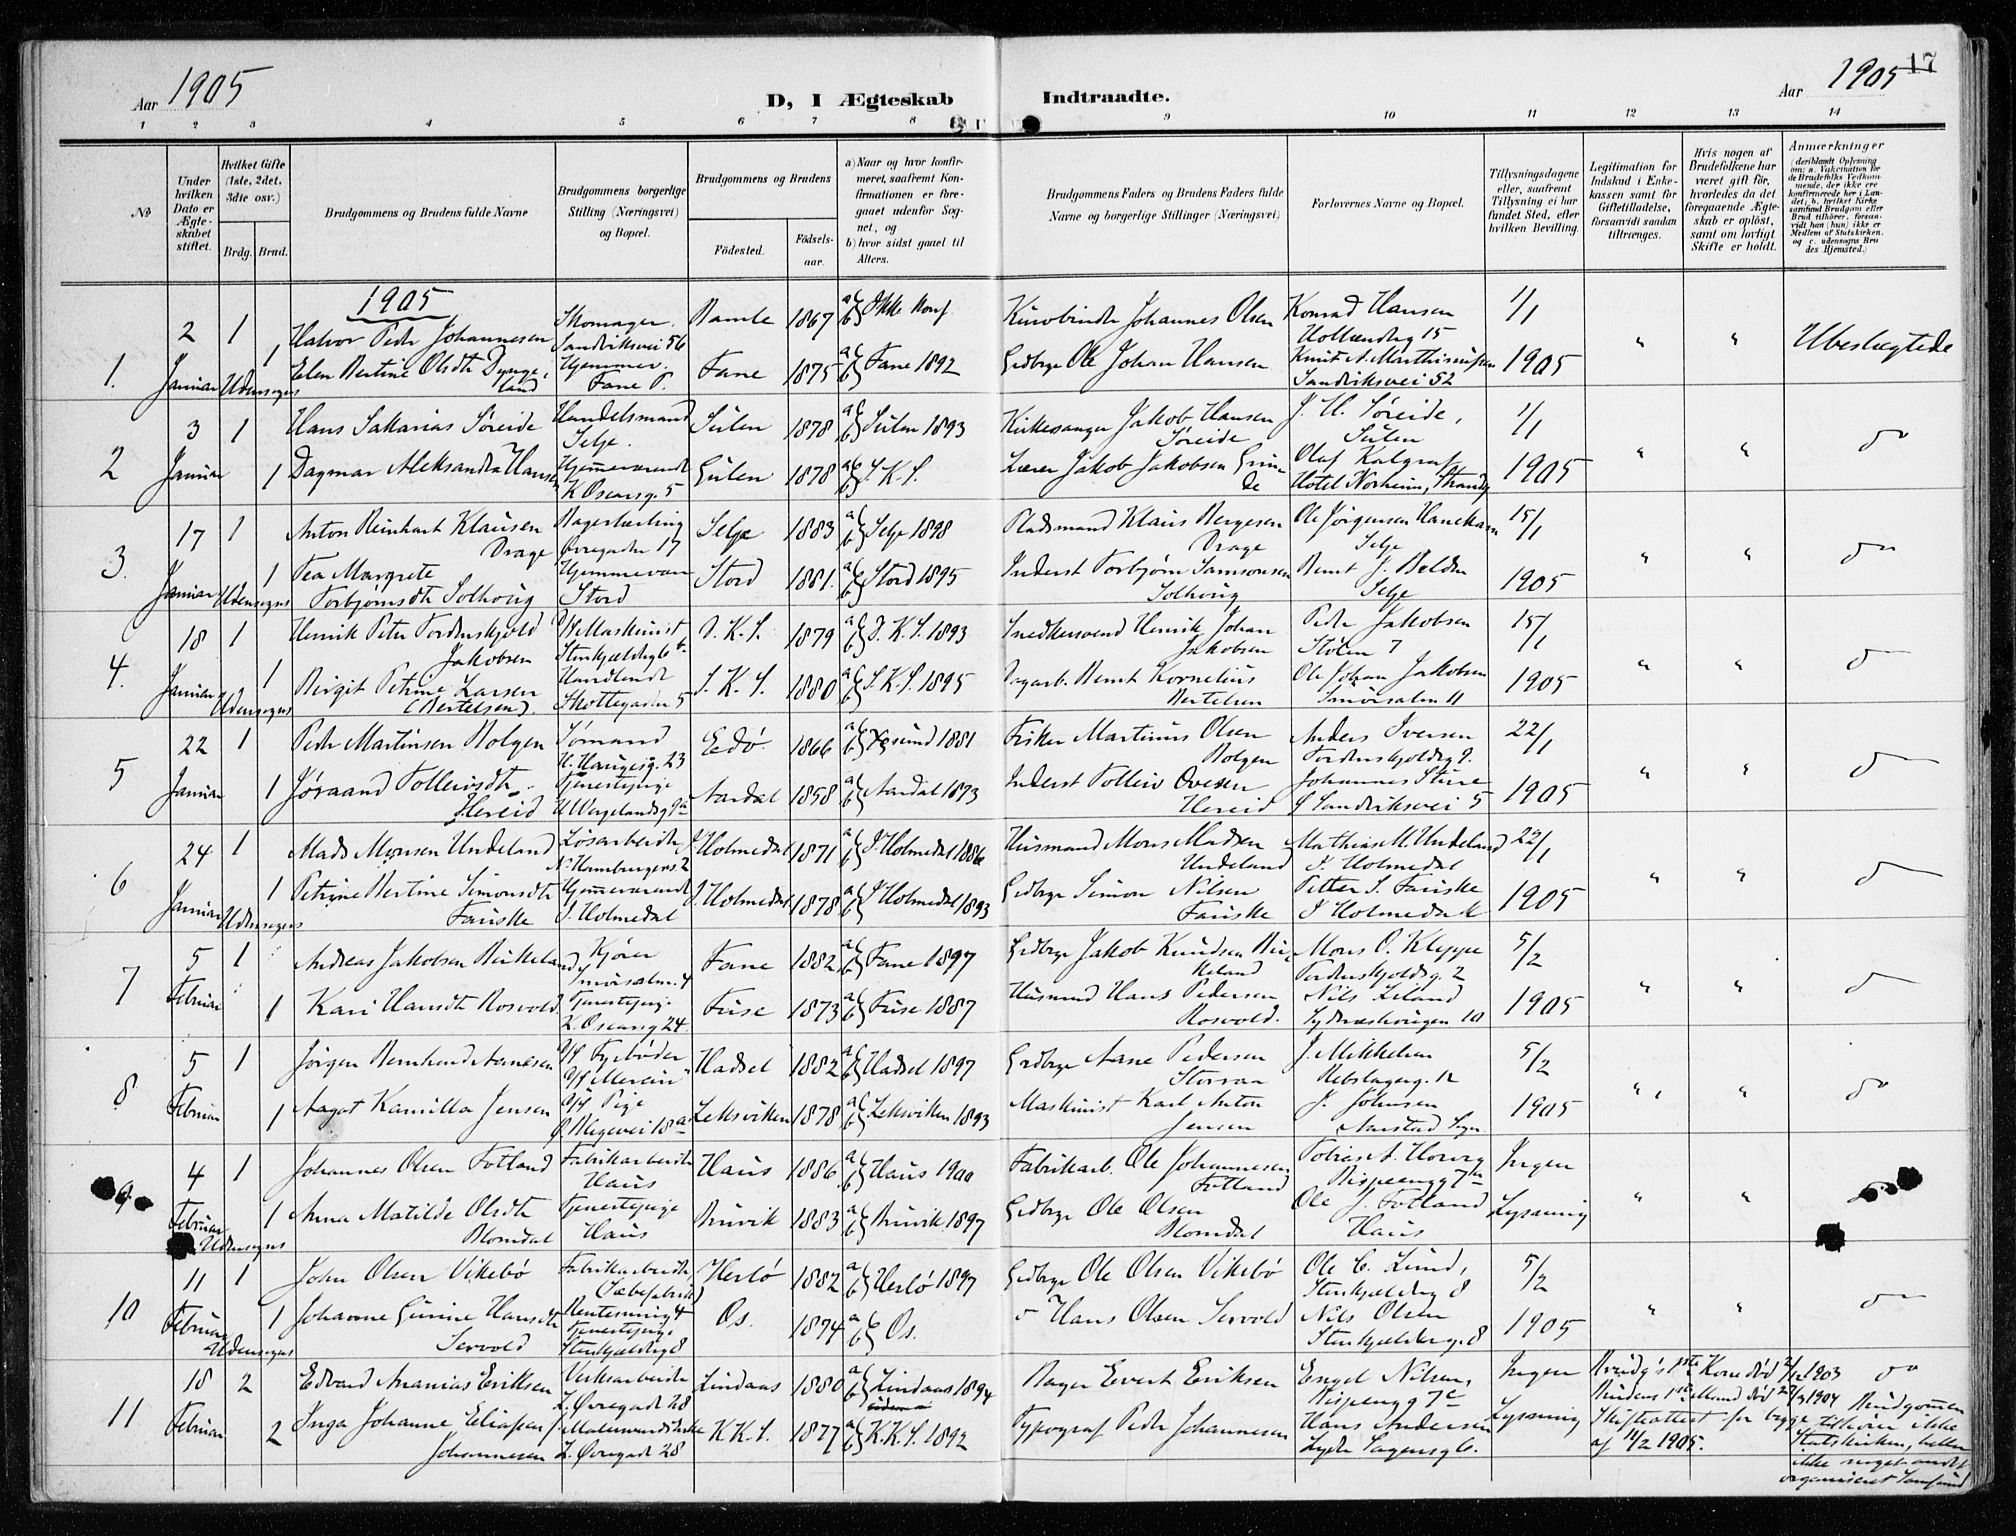 Aar 1905
D, I Ægteskab Indtraadte.
Aar 1905
17
1 2 3 4 5 6 7 8 9 10 11 12 13 14
No
Under hvilken Dato er Ægteskabet stiftet.
Hvilket Gifte (1ste, 2det, 3die osv.)
Brdg. Brud.
Brudgommens og Brudens fulde Navne
Brudgommens borgerlige Stilling (Næringsvei) og Bopæl.
Brudgommens og Brudens
Fødested.
Fødselsaar.
a) Naar og hvor konfirmeret, saafremt Konfirmationen er foregaaet udenfor Sognet, og
b) hvor sidst gaaet til Alters.
Brudgommens Faders og Brudens Faders fulde Navne og borgerlige Stillinger (Næringsvei)
Forlovernes Navne og Bopæl.
Tillysningsdagene eller, saafremt Tillysning ei har fundet Sted, efter hvilken Bevilling.
Legitimation for Indskud i Enkekassen samt for Giftetilladelse, forsaavidt saadan tiltrænges.
Hvis nogen af Brudefolkene har været gift før, hvorledes da det foregaaende Ægteskab er opløst, samt om lovligt Skifte er holdt.
Anmærkninger
(deriblandt Oplysning om: a. Vakcination for de Brudefolks Vedkommende, der ikke ere konfirmerede her i Landet; b. hvilket Kirkesamfund Brudgom eller Brud tilhører, forsaavidt han (hun) ikke er Medlem af Statskirken, og c. udensogns Brudes Hjemsted.)
1905
1. 2 Januar 1 Halvor Peder Johannesen Skomager. Sandviksvei 56 Bamle 1867 a b Ikke konf. Johannes Olsen Konrad Hansen Hollænderg 15 1/1 " " Ubeslægtede
1 Udensogns Elen Bertine Olsdtr Dyngeland Hjemmev. Fane P. Fane 1875 a b Fane 1892 Grdbrgr Ole Johan Hansen Sandviksvei 52 1905
2 3 Januar 1 Hans Sakarias Søreide Handelsmand Selje. Sulen 1878 a b Sulen 1893 Kirkesanger Jakob Hansen Søreide J. H. Søreide, Sulen 1/1 " " do
1 Dagmar Aleksandra Hansen Hjemmeværende K. Oscarsg. 5 Gulen 1878 a b S. K. S. Lærer Jakob Jakobsen Olaf Kalgraf Hotel Norheim, Strandg 1905
3. 17 Januar 1 Anton Reinhart Klausen Drage Bagerlærling Øvregaden 17 Selje 1883 a b Selje 1898 Pladsmand Klaus Børgesen Drage Ole Jørgensen Selje 15/1 " " do
1 Udensogns Tea Margrete Torbjørnsdtr Solhoug Hjemmevær. Stord Stord 1881. a b Stord 1895 Inderst Torbjørn Samsonsen Solhoug Bernt J. Selje 1905
4. 18 Januar 1 Henrik Peter Tordenskjold Jakobsen Maskinist D. K. S. 1879 a b D. K. S. 1893 Snedkersvend Henrik Johan Jakobsen Peder Jakobsen Stølen 7 15/1 " " do
1 Udensogns Birgit Petrine Larsen (Bertelsen). Skottegaden 5 S. K. S. 1880 a b S. K. S. 1895 Dagarb. Bernt Kornelius Bertelsen Ole Johan Jakobsen 11 1905
5 22 Januar 1 Peder Martinsen Bolgen Sømand H. Haugesg. 23 Edø. 1866 a b 1881 Fisker Martinus Olsen Bolgen Anders Iversen Tordenskjoldsg 9. 22/1 " " do
1 Jøraand Tolleivsdtr Hereid Tjenestepige Aardal 1858 a b Aardal 1873 Inderst Tolleiv Ovesen Hereid Johannes Sture Sandviksvei 5 1905
6 24 Januar 1 Mads Monsen Undeland Løsarbeider I. Holmedal 1871 a b I. Holmedal 1886 Husmand Mons Madsen Undeland Mathias M. Undeland I. Holmedal 22/1 " " do
1 Udensogns Petrine Bertine Simonsdtr Fauske Hjemmeværende I. Holmedal I. Holmedal 1878 a b I. Holmedal 1893 Grdbrgr Simon Nilsen Fauske Petter S. Fauske I. Holmedal 1905
7 5 Februar 1 Andreas Jakobsen Birkeland Kjører Fane 1882 a b Fane 1897 Grdbrgr Jakob Knudsen Birkeland Mons O. Kleppe Tordenskjoldsg. 2 5/2 " " do
1 Kari Hansdtr Rosvold. Tjenestepige K. Oscarsg 24. Fuse 1873 a b Fuse 1887 Husmand Hans Pedersen Rosvold. Nils 10 1905
8 5 Februar 1 Jørgen Bernhard Arnesen Fyrbøder Hadsel 1882 a b Hadsel 1897 Grdbrgr Arne Pedersen Storraa J. Mikkelsen Rebslagerg. 12 5/2 " " do
1 Aagot Kamilla Jensen Pige Leksviken 1878 a b Leksviken 1893 Maskinist Karl Anton Jensen J. Johnsen 1905
9 4 Februar 1 Johannes Olsen Fotland Fabrikarbeider Haus Haus 1886 a b Haus 1900 Fabrikarb. Ole Johannesen Fotland Tobias A. Ingen " "
1 Udensogns Anna Matilde Olsdtr Blomdal Tjenestepige Haus Bruvik 1883 a b Bruvik 1897 Grdbrgr Ole Olsen Blomdal Ole J. Fotland Haus Lysning
10 11 Februar 1 John Olsen Vikebø Fabrikarbeider, Sæbefabrik Herlø 1882 a b Herlø 1897 Grdbrgr Ole Olsen Vikebø Ole C. Lund, 8 5/2 " " do
1 Udensogns Johanne Gurine Hansdtr Servold Tjenestepige 8 Os. 1874 a b Os. Hans Olsen Servold Nils Olsen 8 1905
11 18 Februar 2 Edvard Ananias Eriksen Verksarbeider L. Øvregade 28 Lindaas 1880 a b Lindaas 1894 Bager Evert Eriksen Engel Nilsen, Ingen Brudg's 1ste Kone død 1903 do
2 Inga Johanne Eliassen f. Johannesen L. Øvregade 28 K. K. S. 1877 a b K. K. S. 1892 Typograf Peder Johannesen Hans Andersen Lyder Sagensg 6. Lysning Brudens 1ste Mand død 1904 Skifteattest for begge af 11/2 1905. Brudgommen tilhører ikke Statskirken, heller ikke noget andet organiseret Samfund